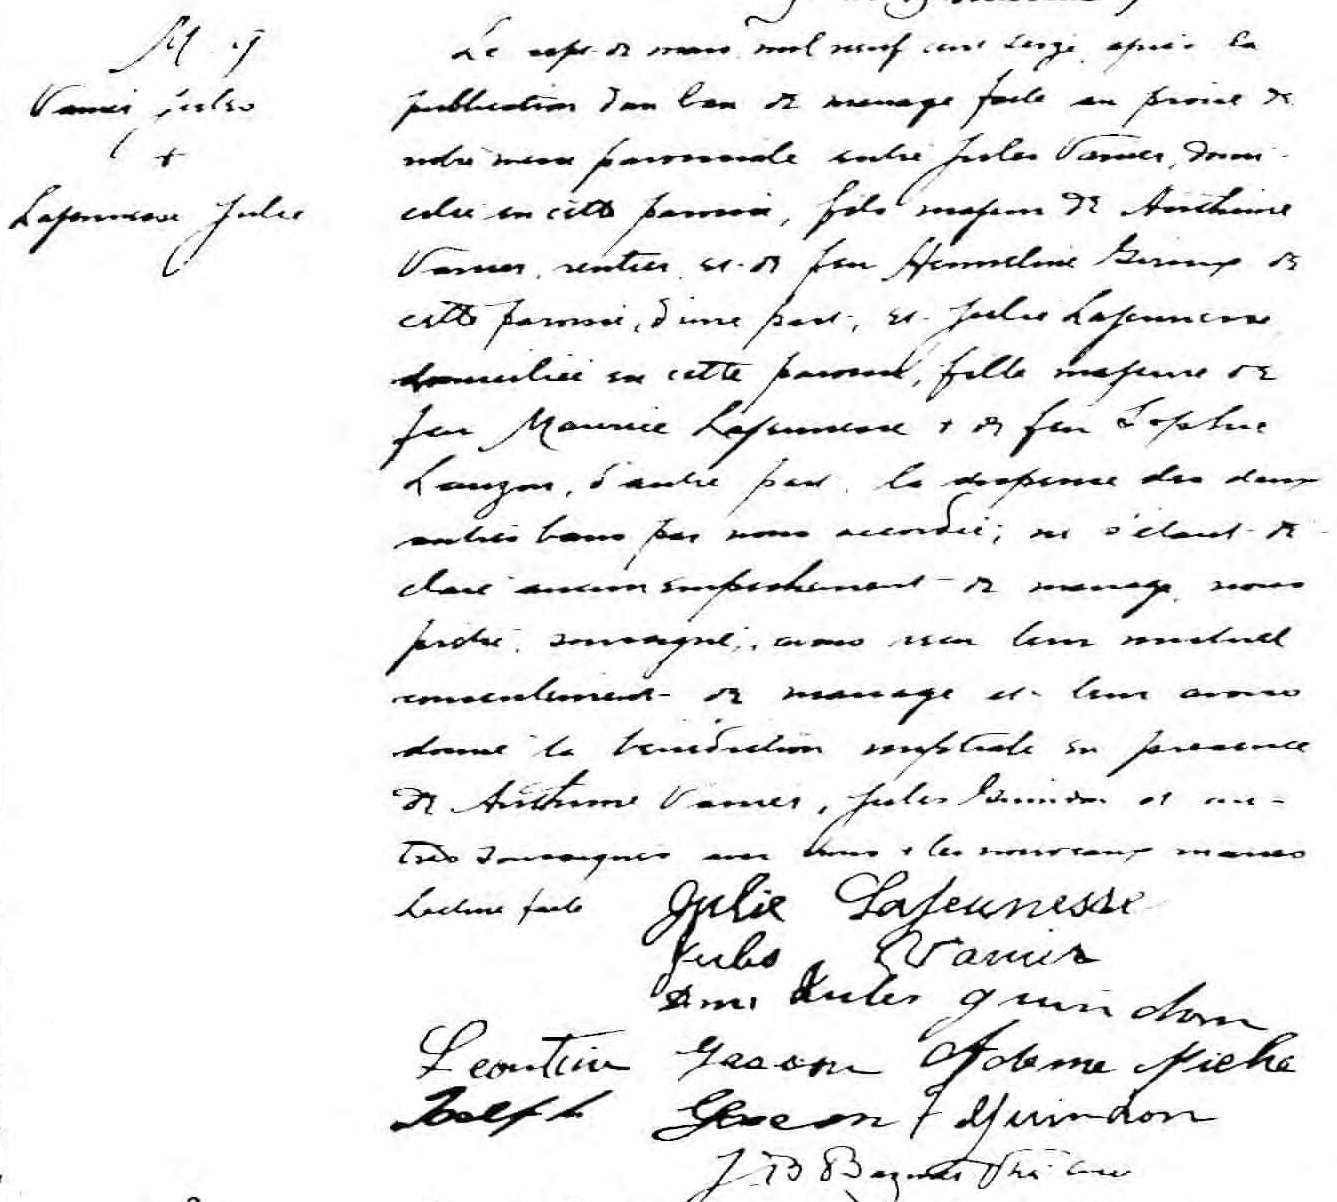 M. 9
Vanier Jules
+
Lajeunesse Julie
Le sept de mars mil neuf cent seize, après la
publication d'un ban de mariage faite au prône de
notre messe paroissiale entre Jules Vanier, domi-
cilié en cette paroisse, fils majeur de Anthime
Vanier, rentier, et de feu Hermeline Giroux de
cette paroisse, d'une part, et Julie Lajeunesse
domiciliée en cette paroisse, fille majeure de
feu Maurice Lajeunesse + de feu Sophie
Lauzon, d'autre part, la dispense des deux
autres bans par nous accordée; ne s'étant dé-
claré aucun empêchement de mariage, nous
prêtre, soussigné, avons reçu leur mutuel
consentement de mariage et leur avons
donné la bénédiction nuptiale en présence
de Anthime Vanier, Jules Guindon et au-
tres soussignés avec nous + les nouveaux mariés
Lecture faite Julie Lajeunesse
Jules Vanier
Jules Guindon
Leontine Gascon
Joseph Gascon Guindon
J. B.